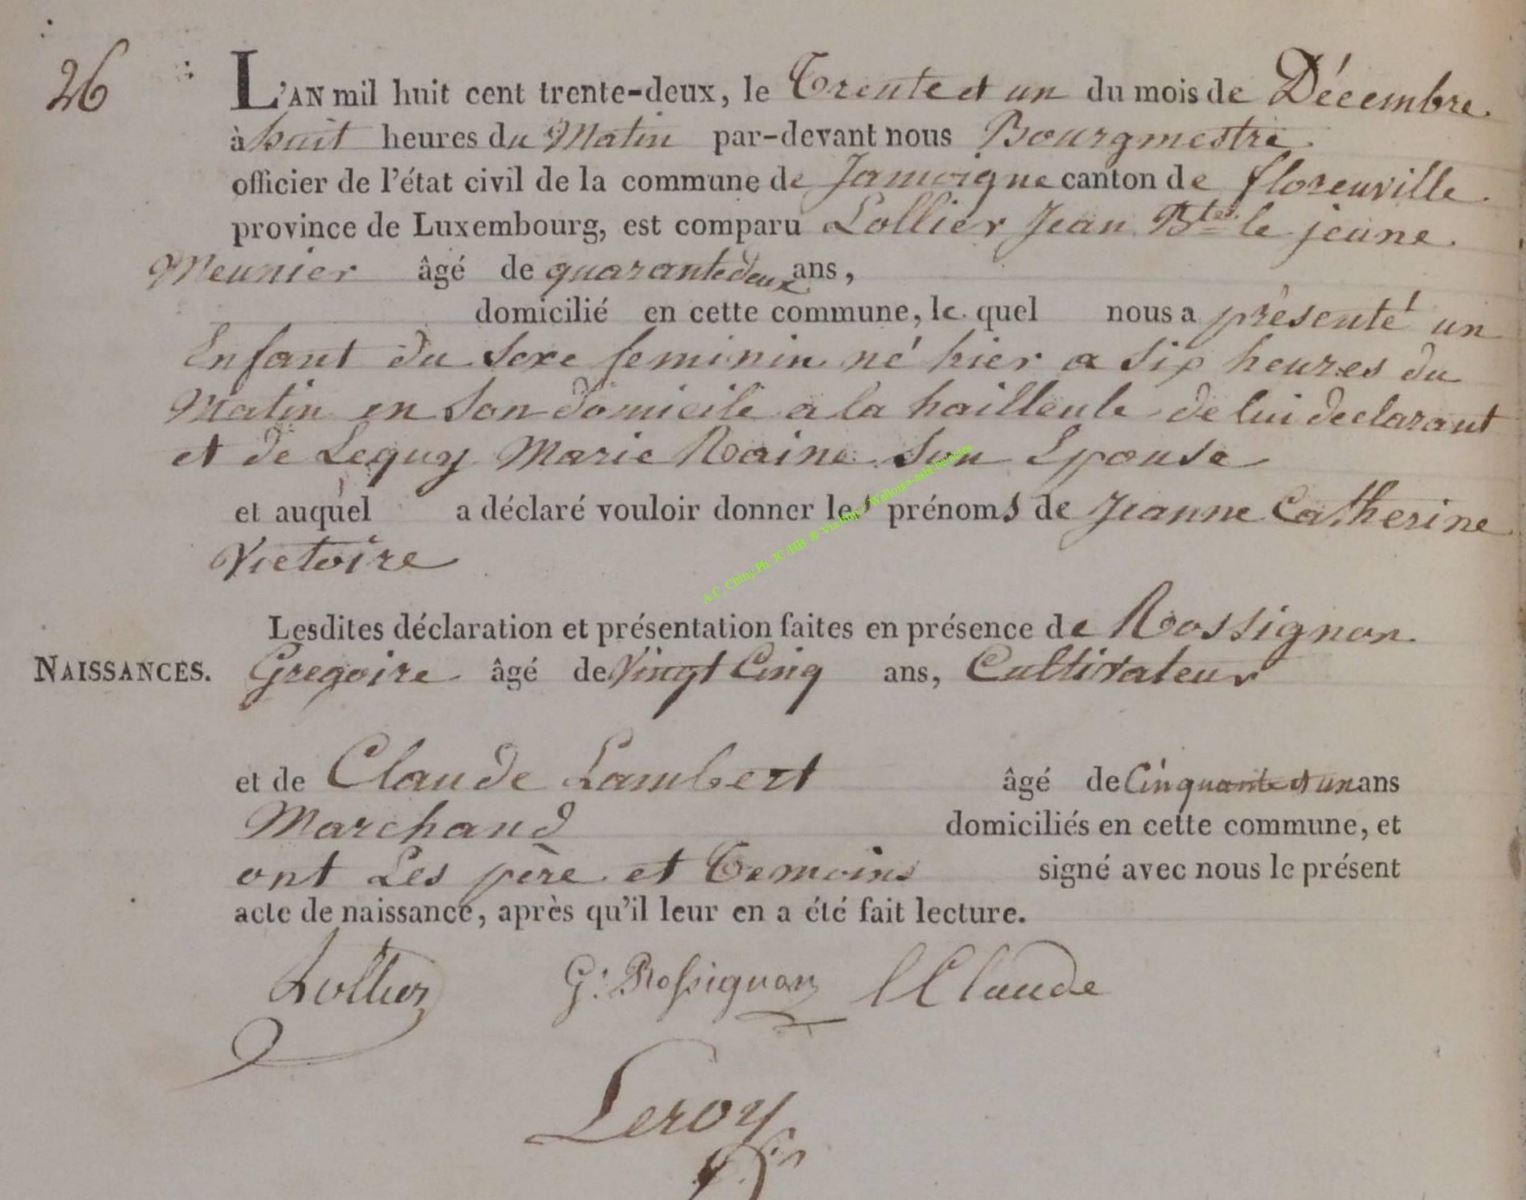 26
L'AN mil huit cent trente-deux, le Trente et un du mois de Décembre
à huit heures du Matin par-devant nous Bourgmestre
officier de l'état civil de la commune de Jamoigne canton de florenville
province de Luxembourg, est comparu Lollier Jean Bte le jeune
Meunier âgé de quarante deux ans,
domicilié en cette commune, le quel nous a présenté un
Enfant du sexe feminin né hier a six heures du
Matin en son domicile a la hailleule de lui declarant
et de Lequy Marie Raine son Epouse
et auquel a déclaré vouloir donner les prénoms de Jeanne Catherine
Victoire
Lesdites déclaration et présentation faites en présence de Rossignon
NAISSANCES. Gregoire âgé de Vingt Cinq ans, Cultivateur
et de Claude Lambert âgé de Cinquante et un ans
Marchand domiciliés en cette commune, et
ont Les père et Temoins signé avec nous le présent
acte de naissance, après qu'il leur en a été fait lecture.
Lollier G. Rossignon L Claude
Leroy